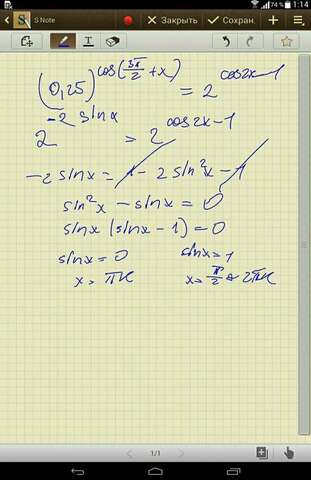 74 % 1:14
S Note Закрыть Сохран.
(0,25)^cos(3π/2 + x) = 2^cos2x-1
2^-2 sinx = 2^cos2x-1
-2 sinx = 1 - 2 sin²x - 1
sin²x - sinx = 0
sinx (sinx - 1) = 0
sinx = 0 sinx = 1
x = πk x = π/2 + 2πk
1/1